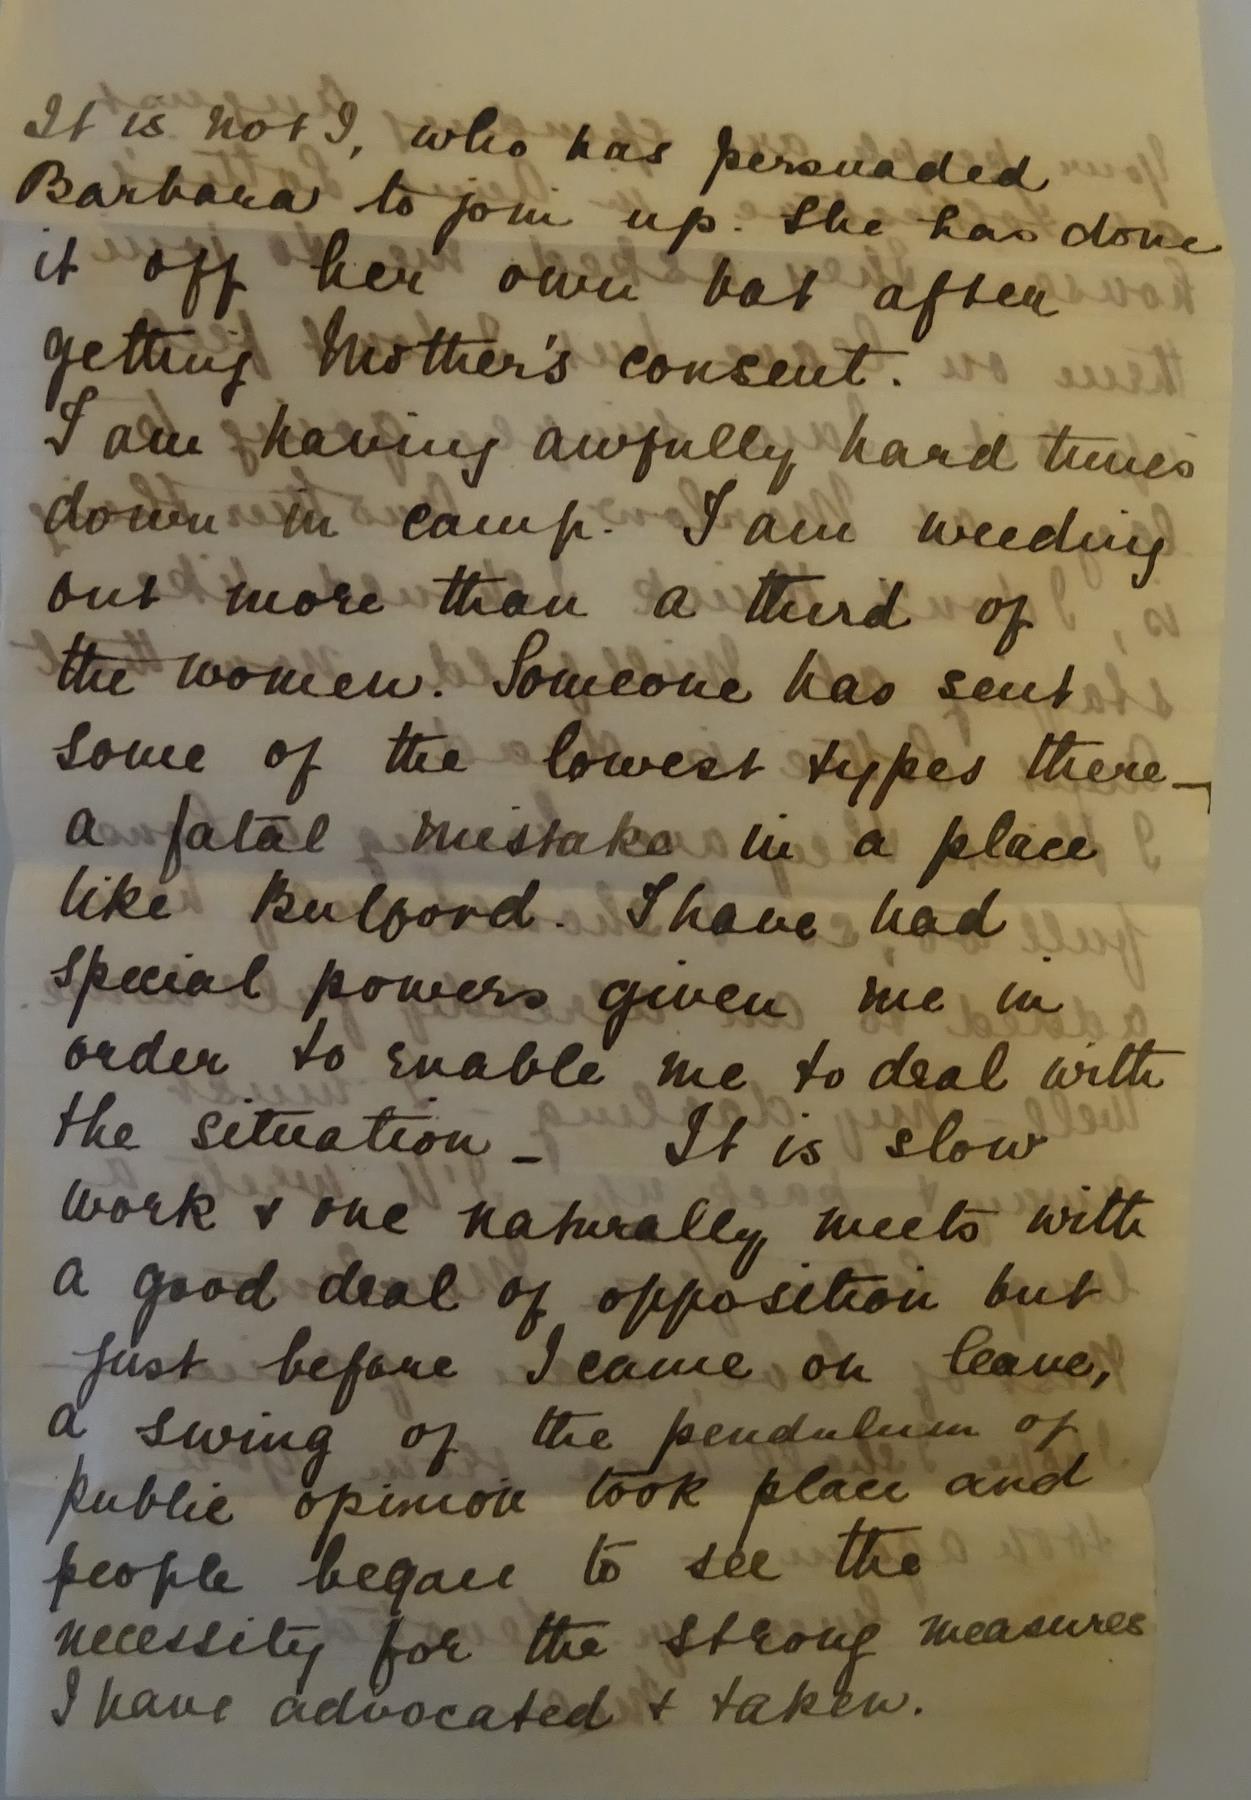 It is not I, who has persuaded
Barbara to join up. She has done
it off her own bat after
getting Mother's consent.
I am having awfully hard times
down in camp. I am weeding
out more than a third of
the women. Someone has sent
some of the lowest types there –
a fatal mistake in a place
like Bulford. I have had
special powers given me in
order to enable me to deal with
the situation – It is slow
work & one naturally meets with
a good deal of opposition but
just before I came on leave,
a swing of the pendulum of
public opinion took place and
people began to see the
necessity for the strong measures
I have advocated & taken.